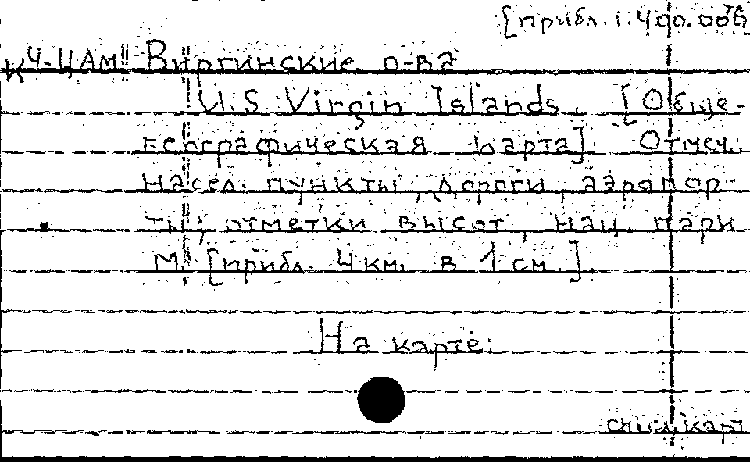 [прибл. 1:400.000]
К4-ЦАМ Виргинские о-ва
U.S. Virgin Islands. [Обще-
географическая карта]. Отмеч.
насел. пункты, дороги, аэропор-
ты, отметки высот, нац. парки
М. [прибл. 4 км. в 1 см.].
На карте: